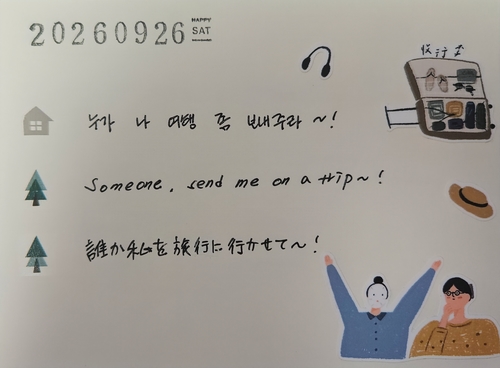 20260926 HAPPY SAT
누가 나 여행 좀 보내주라 ~!
Someone, send me on a trip~!
誰か私を旅行に行かせて~!